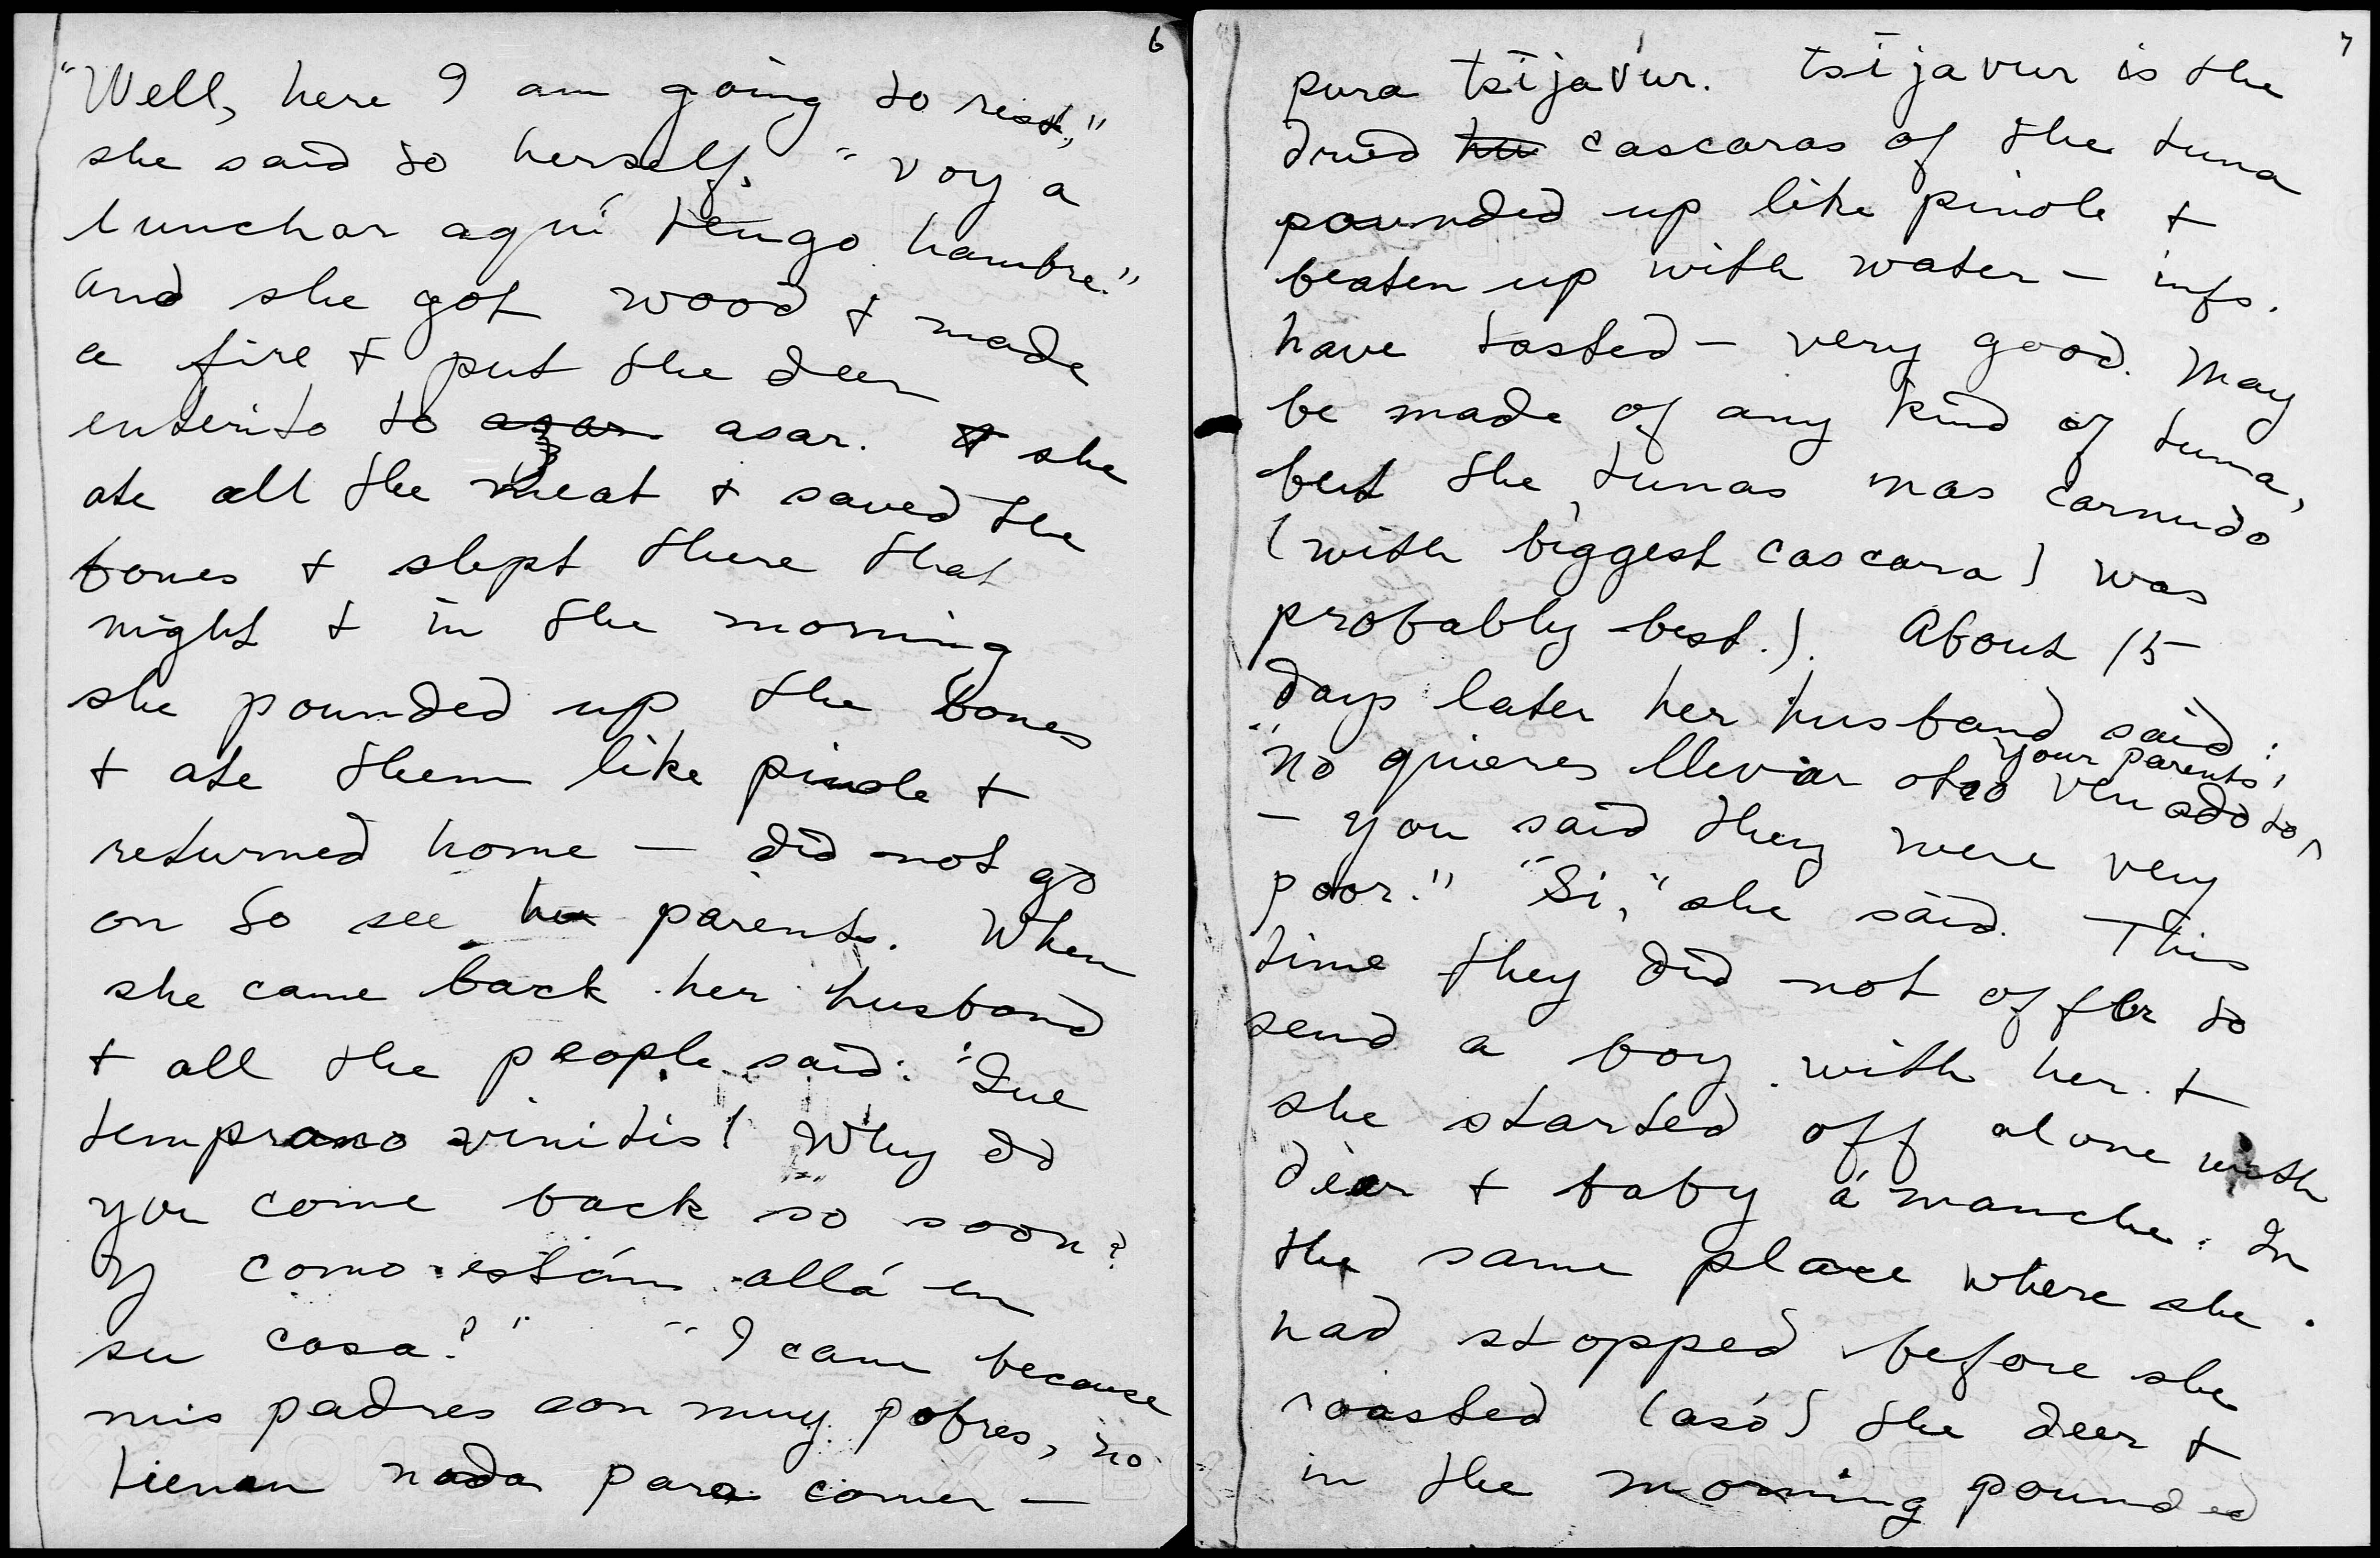 6
"Well, here I am going to rest,"
she said to herself, "voy a
lunchar aquí tengo hambre."
and she got wood + made
a fire + put the deer
enterito to asar asar. + she
ate all the meat + saved the
bones + slept there that
night + in the morning
she pounded up the bones
+ ate them like pinole +
returned home — did not go
on to see her parents. When
she came back her husband
+ all the people said: "Que
temprano vinitis! Why do
you come back so soon?
Y como están allá en
su casa?" "I came because
mis padres son muy pobres, no
tienen nada para comer —
7
pura tsījav́ur. tsījavur is the
dried hu cascaras of the tuna
pounded up like pinole +
beaten up with water — infs.
have tasted — very good. May
be made of any kind of tuna,
but the tunas mas carnudo
(with biggest cascara) was
probably best.). About 15
days later her husband said:
"no quieres llevar otro venado to your parents,
— you said they were very
poor." "Si," she said. This
time they did not offer to
send a boy with her +
she started off alone with
deer + baby á manche. In
the same place where she
had stopped before she
roasted (asó) the deer +
in the morning pounded